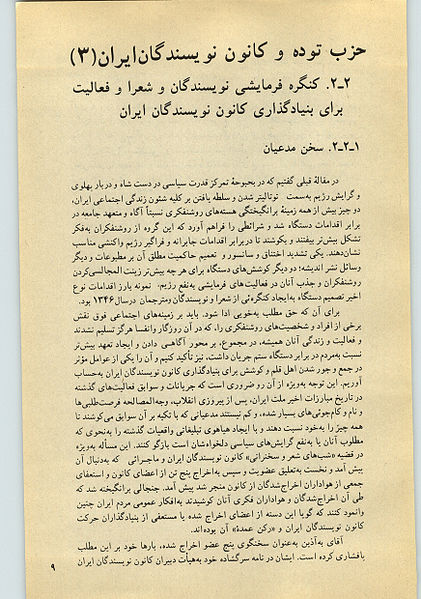 حزب توده و کانون نویسندگان ایران (۳)
۲ـ۲. کنگره فرمایشی نویسندگان و شعرا و فعالیت
برای بنیادگذاری کانون نویسندگان ایران
۱ـ۲ـ۲. سخن مدعیان
در مقالهٔ قبلی گفتیم که در بحبوحهٔ تمرکز قدرت سیاسی در دست شاه و دربار پهلوی
و گرایش رژیم به‌سمت توتالیتر شدن و سلطه یافتن بر کلیه شئون زندگی اجتماعی ایران،
دو چیز بیش از همه زمینهٔ برانگیختگی هسته‌های روشنفکری نسبتاً آگاه و متعهد جامعه در
برابر اقدامات دستگاه شد و شرائطی را فراهم آورد که این گروه از روشنفکران به‌فکر
تشکل بیش‌تر بیفتند و بکوشند تا دربرابر اقدامات جابرانه و فراگیر رژیم واکنشی مناسب
نشان‌دهند. یکی تشدید اختناق و سانسور و تعمیم حاکمیت مطلق آن بر مطبوعات و دیگر
وسائل نشر اندیشه؛ دو دیگر کوشش‌های دستگاه برای هر چه بیش‌تر زینت المجالسی‌کردن
روشنفکران و جذب آنان در فعالیت‌های فرمایشی به‌نفع رژیم. نمونه بارز اقدامات نوع
اخیر تصمیم دستگاه به‌ایجاد کنگره‌ئی از شعرا و نویسندگان ومترجمان درسال ۱۳۴۶ بود.
برای آن که حق مطلب به‌خوبی ادا شود. باید بر زمینه‌های اجتماعی فوق نقش
برخی از افراد و شخصیت‌های روشنفکری را، که در آن روزگار وانفسا هرگز تسلیم نشدند
و فعالیت و زندگی آنان همیشه، در مجموع، بر محور آگاهی دادن و ایجاد تعهد بیش‌تر
نسبت به‌مردم در برابر دستگاه ستم جریان داشت، نیز تأکید کنیم و آن را یکی از عوامل مؤثر
در جمع و جور شدن اهل قلم و کوشش برای بنیادگذاری کانون نویسندگان ایران به‌حساب
آوریم. این توجه به‌ویژه از آن رو ضروری است که جریانات و سوابق فعالیت‌های گذشته
در تاریخ مبارزات اخیر ملت ایران، پس از پیروزی انقلاب، وجه‌المصالحه فرصت‌طلبی‌ها
و نام و کام‌جوئی‌های بسیار شده، و کم نیستند مدعیانی که با تکیه بر آن سوابق می‌کوشند تا
همه چیز را به‌خود نسبت دهند و با ایجاد هیاهوی تبلیغاتی واقعیات گذشته را به‌نحوی که
مطلوب آنان یا به‌نفع گرایش‌های سیاسی دلخواه‌شان است بازگو کنند. این مسأله به‌ویژه
در قضیه «شب‌های شعر و سخنرانی» کانون نویسندگان ایران و ماجرائی که به‌دنبال آن
پیش آمد و نخست به‌تعلیق عضویت و سپس به‌اخراج پنج تن از اعضای کانون و استعفای
جمعی از هواداران اخراج‌شدگان از کانون منجر شد پیش آمد. جنجالی برانگیخته شد که
طی آن اخراج‌شدگان و هواداران فکری آنان کوشیدند به‌افکار عمومی مردم ایران چنین
وانمود کنند که گویا این دسته از اعضای اخراج شده یا مستعفی از بنیادگذاران حرکت
کانون نویسندگان ایران و «رکن عمدهٔ» آن بوده‌اند.
آقای به‌آذین به‌عنوان سخنگوی پنج عضو اخراج شده، بارها خود بر این مطلب
پافشاری کرده است. ایشان در نامه سرگشاده خود به‌هیأت دبیران کانون نویسندگان ایران
۹